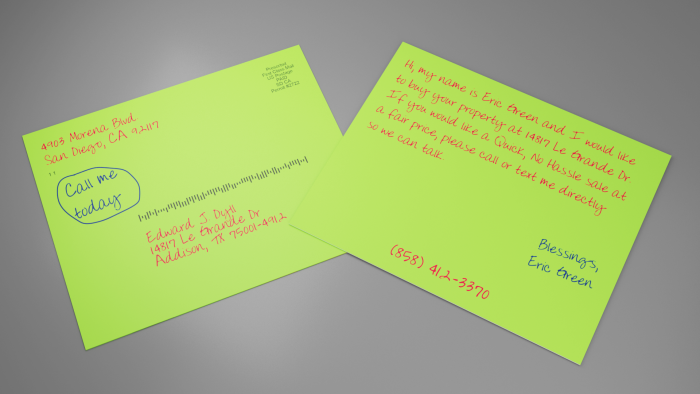 4903 Morena Blvd
San Diego, CA 92117
Call me
today
Presorted
First Class Mail
US Postage
PAID
Edward J. Dyll
14817 Le Grande Dr
Addison, TX 75001-4912
Hi, my name is Eric Green and I would like
to buy your property at 14817 Le Grande Dr
If you would like a Quick, No Hassle sale at
a fair price, please call or text me directly
so we can talk
Blessings,
Eric Green
(858) 412-3370